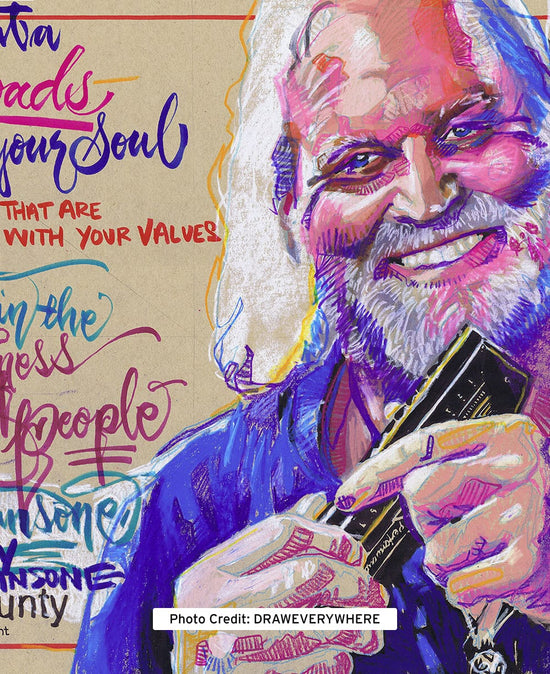 ta
oads
your Soul
THAT ARE
WITH YOUR VALUES
in the
ness
people
ansone
ANSONE
unty
nt
Photo Credit: DRAWEVERYWHERE